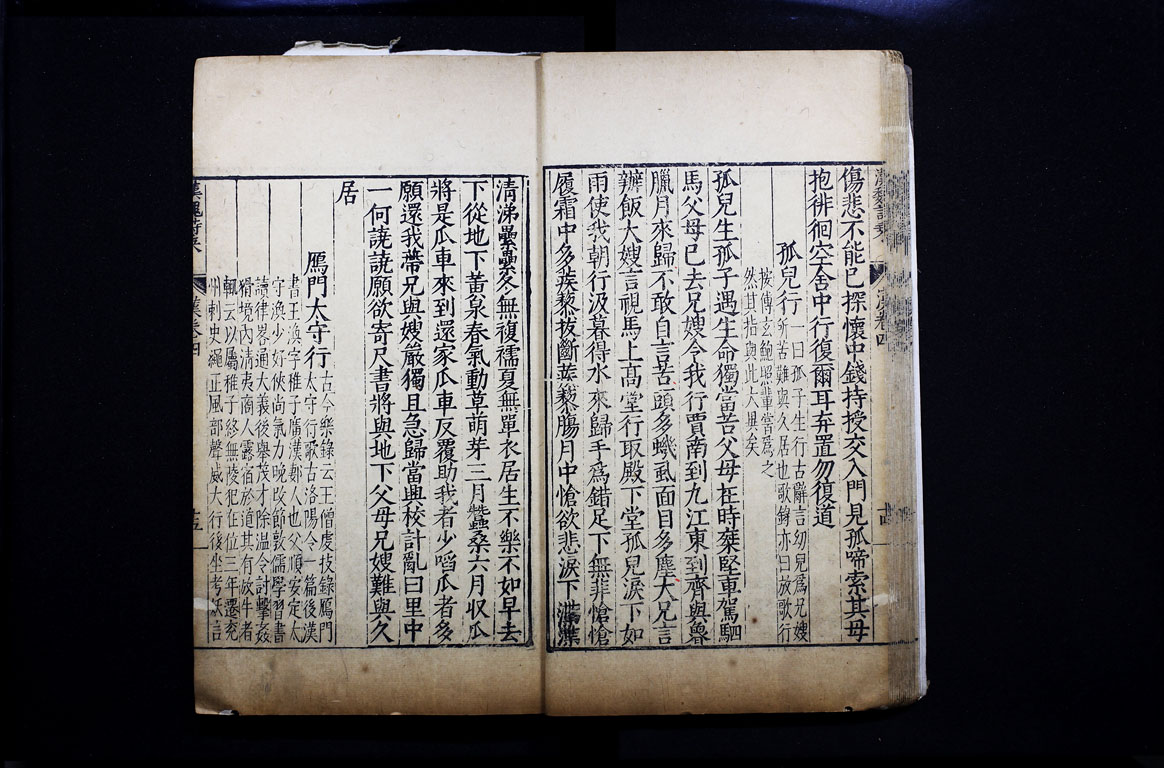 漢魏詩乘 漢卷四 十四
傷悲不能已探懷中錢持授交入門見孤啼索其母
抱徘徊空舍中行復爾耳弃置勿復道
孤兒行一曰孤子生行古辭言幼兒爲兄嫂
所苦難與久居也歌錄亦曰放歌行
按傳玄鮑照輩嘗爲之
然其指與此大異矣
孤兒生孤子遇生命獨當苦父母在時椉堅車駕駟
馬父母已去兄嫂令我行賈南到九江東到齊與魯
臘月來歸不敢自言苦頭多蟣虱面目多塵大兄言
辦飯大嫂言視馬上高堂行取殿下堂孤兒淚下如
雨使我朝行汲暮得水來歸手爲錯足下無菲愴愴
履霜中多蒺藜拔斷蒺藜腸月中愴欲悲淚下渫渫
清涕纍纍冬無複襦夏無單衣居生不樂不如早去
下從地下黃泉春氣動草萌芽三月蠶桑六月収瓜
將是瓜車來到還家瓜車反覆助我者少啗瓜者多
願還我蔕兄與嫂嚴獨且急歸當與校計亂曰里中
一何譊譊願欲寄尺書將與地下父母兄嫂難與久
居
鴈門太守行古今樂錄云王僧虔技錄鴈門
太守行歌古洛陽令一篇後漢
書王渙字稚子廣漢郪人也父順安定太
守渙少好俠尚氣力晚改節敦儒學習書
讀律畧通大義後舉茂才除温令討擊姦
猾境內清夷商人露宿於道其有放牛者
輒云以屬稚子終無陵犯在位三年遷兖
州刺史繩正風部聲威大行後坐考妖言
漢魏詩乘 漢卷四